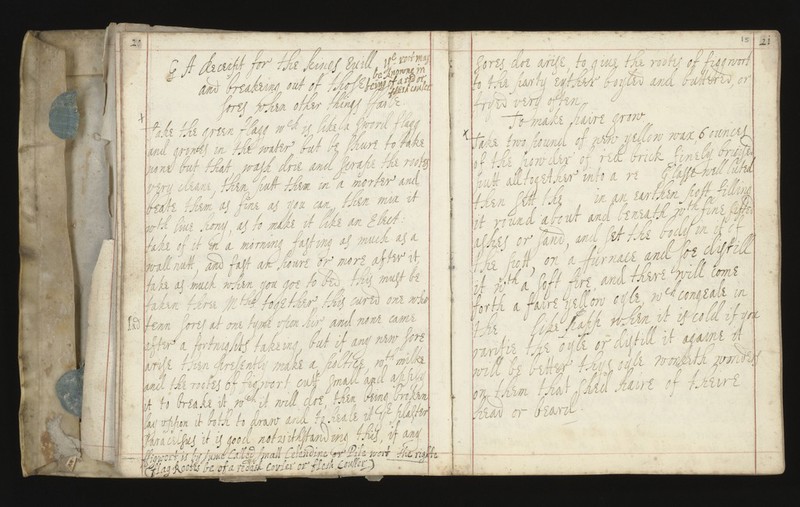 20
A Receipt for the kings Evill
and breakeing out of those
sores when other things faile
ye root may
be knowne in
flesh couler
x
Take the green flagg wch is like a sword flagg
and growes in the water but be shure to take
none but that, wash drie and scrape the rootes
very cleane, then putt them in a morter and
beate them as fine as you can, then mix it
with live hony, as to make it like an Elect:
take of it in a morning fasting as much as a
wallnutt, and fast an houre or more after it
take as much when you goe to bed, this must be
taken three together, this cured one who
tenn sores at one tyme upon her and none came
after a fortnights takeing, but if any new sore
arise then presently make a poltice, wth milke
and the rootes of figwort cutt small and apply
it to breake it wch it will doe, then being broken
lay uppon it both to draw and to heale it ye plaster
Paracelsus it is good notwithstanding this, if any
figwort is by some called small Celendine or Pile wort the right
flag Rootes be of a redish couler or flesh Couler)
15
21
sores doe arise, to give the rootes of figgwort
to the party eyther boyled and buttered, or
fryed very often
To make haire grow
x
Take two pound of yellow wax, 6 ounces
of the powder of red brick finely brused
putt alltogether into a re Glasse well luted
then sett the in an earthen pott filling
it round about and beneath with fine sifted
ashes or sand, and sett the body in it of
the pott on a furnace and soe distill
it with a soft fire and there will come
forth a faire yellow oyle, wch congeale in
the like papp when it is cold if you
rarifie the oyle or distill it againe it
will be better this oyle worketh wonders
on them that shed haire of theire
head or beard